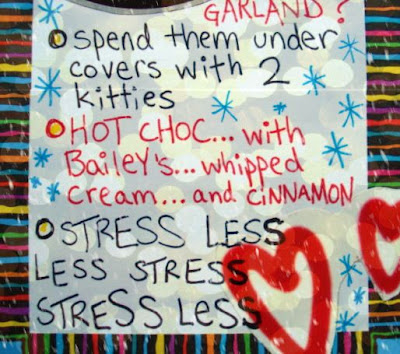 GARLAND?
spend them under
covers with 2
kitties
HOT CHOC... with
Bailey's... whipped
cream... and CiNNAMON
STRESS LESS
LESS STRESS
STRESS LesS